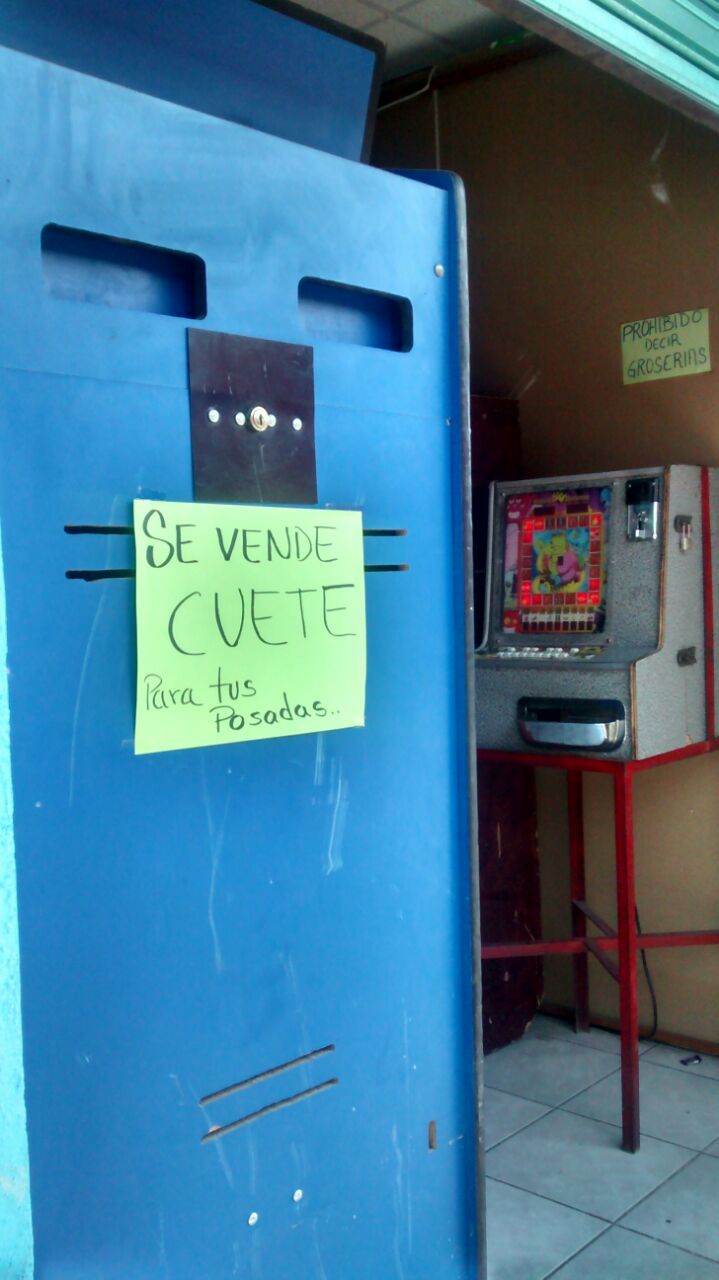 SE VENDE
CUETE
Para tus
Posadas..
PROHIBIDO
DECIR
GROSERIAS